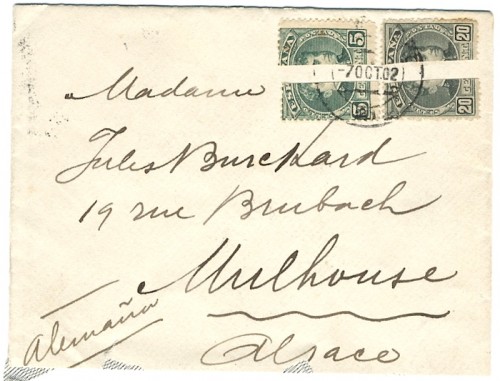 5 20
ESPAÑA
-7 OCT.02
5 20
Madame
Jules Burckard
19 rue Brubach
Mulhouse
Alemaña
Alsace